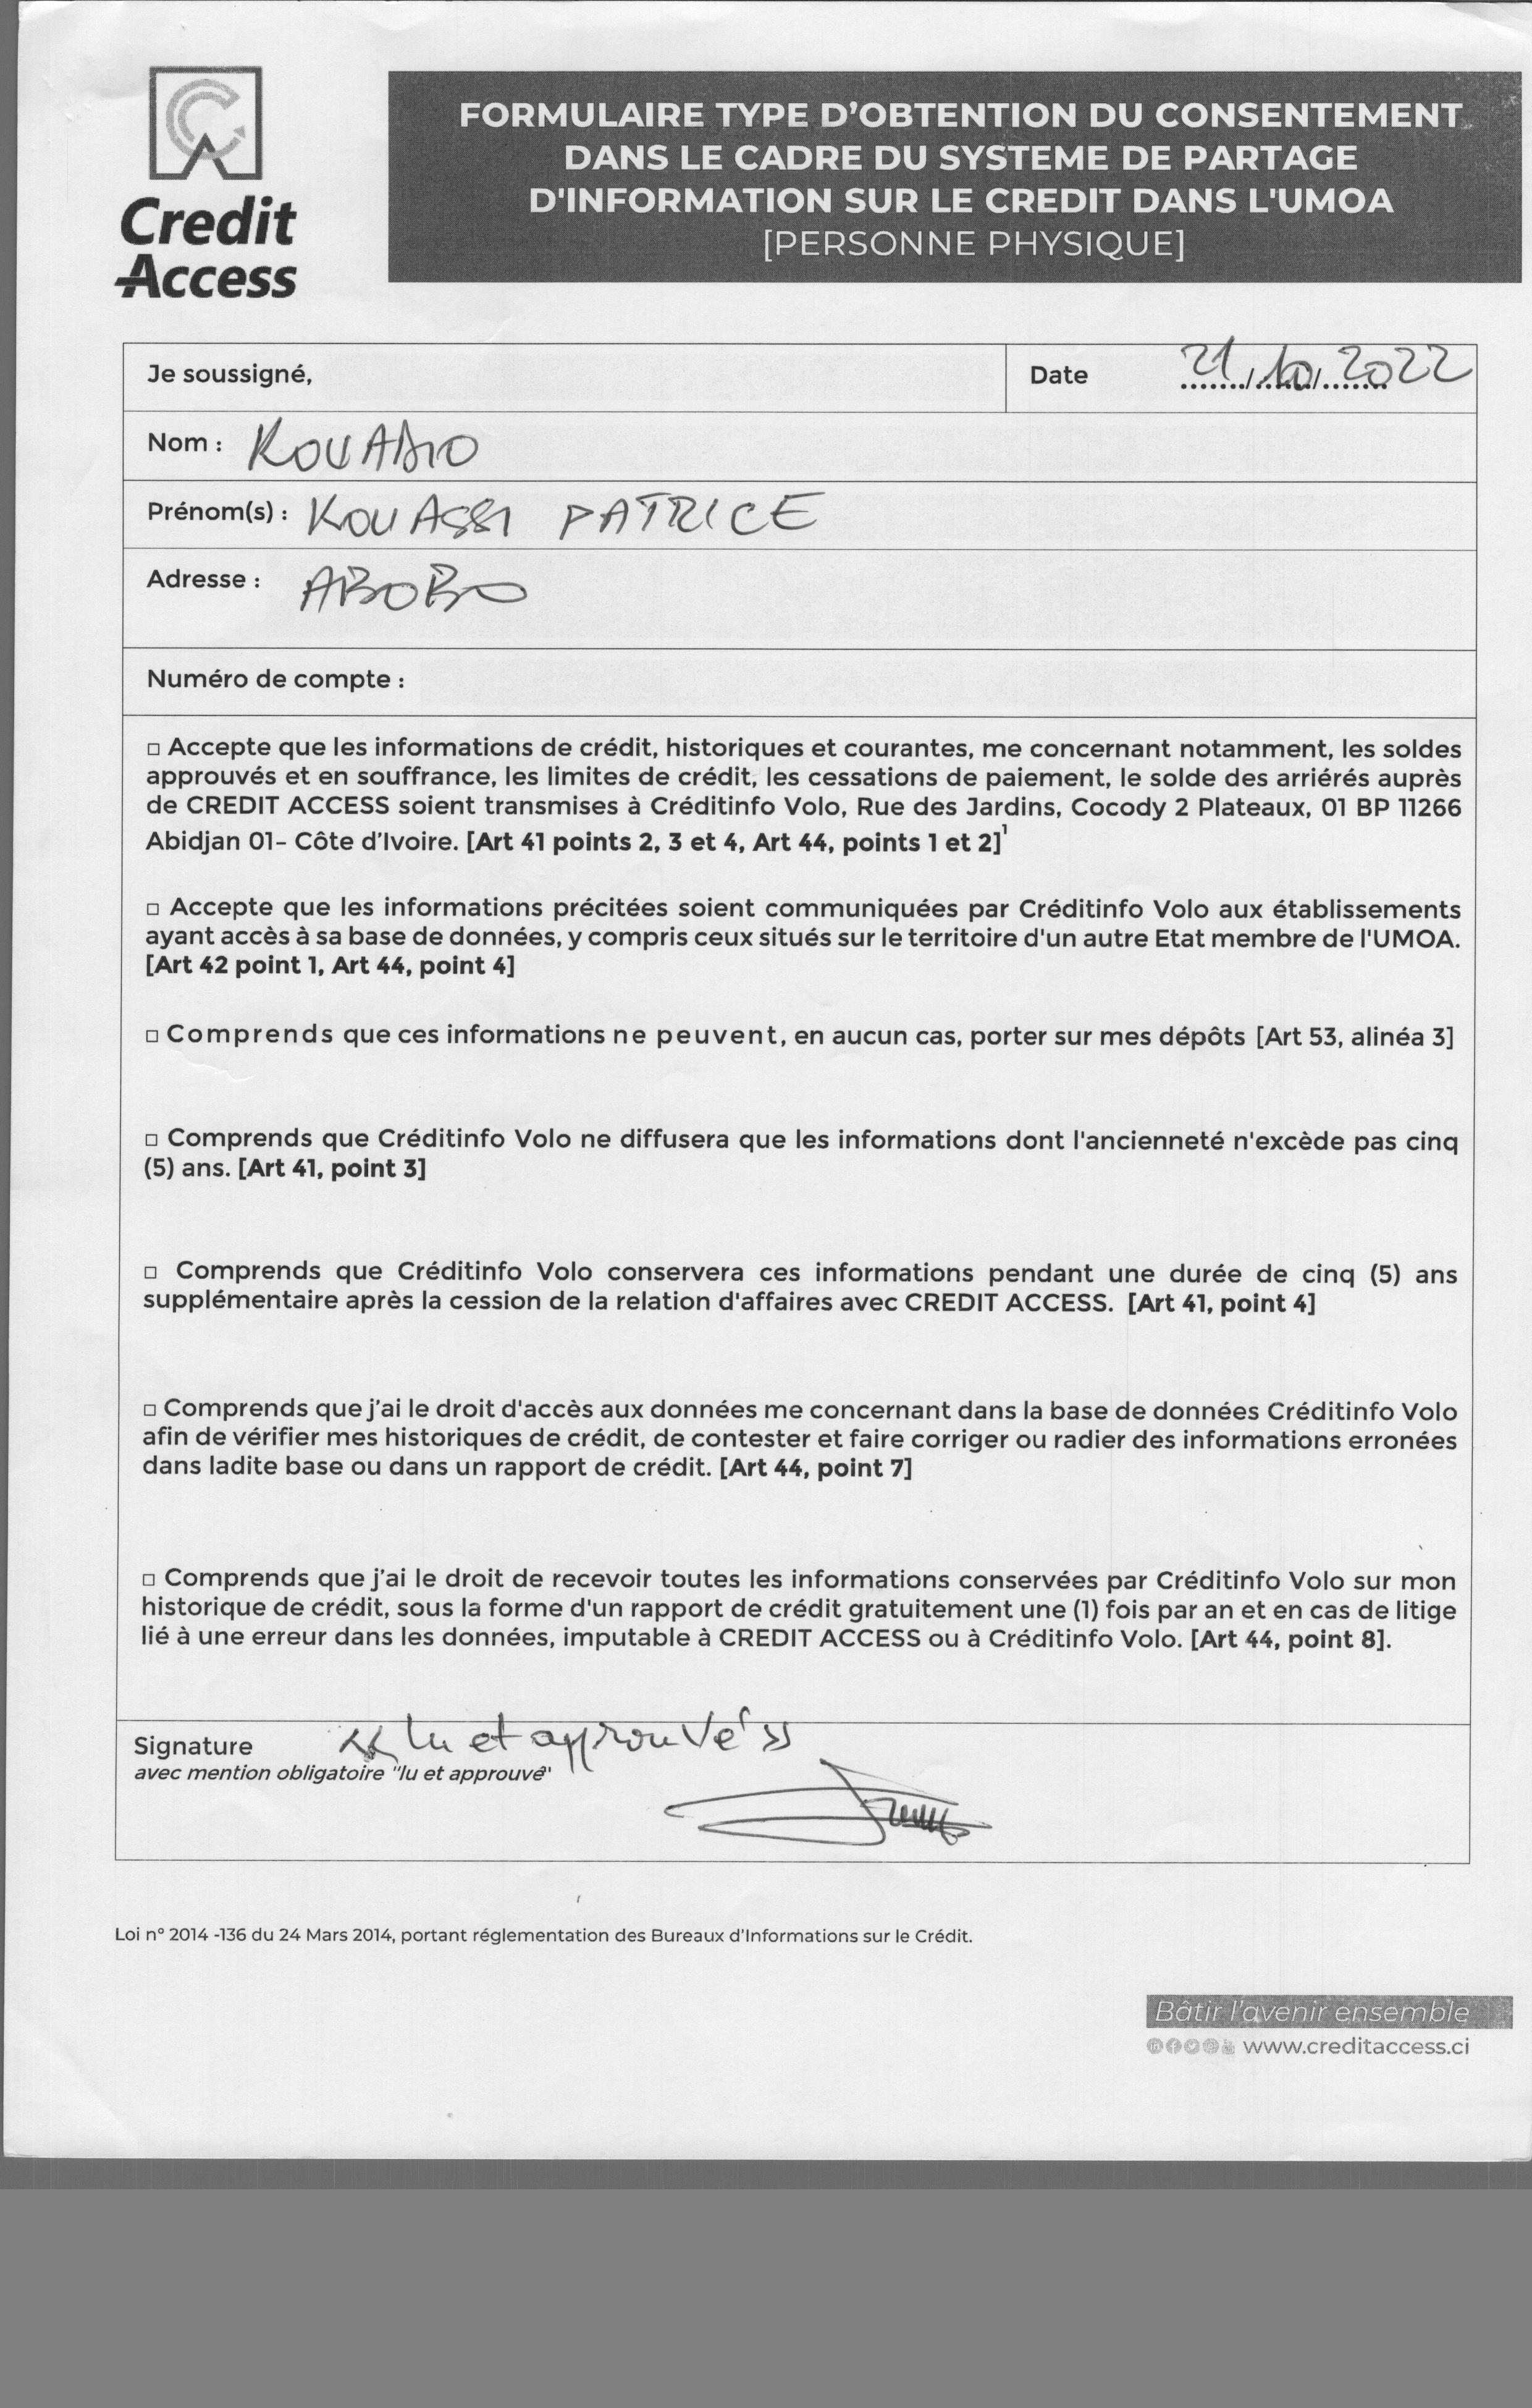 Credit
Access
FORMULAIRE TYPE D'OBTENTION DU CONSENTEMENT
DANS LE CADRE DU SYSTEME DE PARTAGE
D'INFORMATION SUR LE CREDIT DANS L'UMOA
[PERSONNE PHYSIQUE]
Je soussigné,
Date 21/10/2022
Nom : KOUADIO
Prénom(s) : KOUASSI PATRICE
Adresse : ABOBO
Numéro de compte :
□ Accepte que les informations de crédit, historiques et courantes, me concernant notamment, les soldes
approuvés et en souffrance, les limites de crédit, les cessations de paiement, le solde des arriérés auprès
de CREDIT ACCESS soient transmises à Créditinfo Volo, Rue des Jardins, Cocody 2 Plateaux, 01 BP 11266
Abidjan 01- Côte d'Ivoire. [Art 41 points 2, 3 et 4, Art 44, points 1 et 2]¹
□ Accepte que les informations précitées soient communiquées par Créditinfo Volo aux établissements
ayant accès à sa base de données, y compris ceux situés sur le territoire d'un autre Etat membre de l'UMOA.
[Art 42 point 1, Art 44, point 4]
□ Comprends que ces informations ne peuvent, en aucun cas, porter sur mes dépôts [Art 53, alinéa 3]
□ Comprends que Créditinfo Volo ne diffusera que les informations dont l'ancienneté n'excède pas cinq
(5) ans. [Art 41, point 3]
□ Comprends que Créditinfo Volo conservera ces informations pendant une durée de cinq (5) ans
supplémentaire après la cession de la relation d'affaires avec CREDIT ACCESS. [Art 41, point 4]
□ Comprends que j'ai le droit d'accès aux données me concernant dans la base de données Créditinfo Volo
afin de vérifier mes historiques de crédit, de contester et faire corriger ou radier des informations erronées
dans ladite base ou dans un rapport de crédit. [Art 44, point 7]
□ Comprends que j'ai le droit de recevoir toutes les informations conservées par Créditinfo Volo sur mon
historique de crédit, sous la forme d'un rapport de crédit gratuitement une (1) fois par an et en cas de litige
lié à une erreur dans les données, imputable à CREDIT ACCESS ou à Créditinfo Volo. [Art 44, point 8].
Signature « lu et approuvé »
avec mention obligatoire "lu et approuvé"
Loi n° 2014 -136 du 24 Mars 2014, portant réglementation des Bureaux d'Informations sur le Crédit.
Bâtir l'avenir ensemble
www.creditaccess.ci